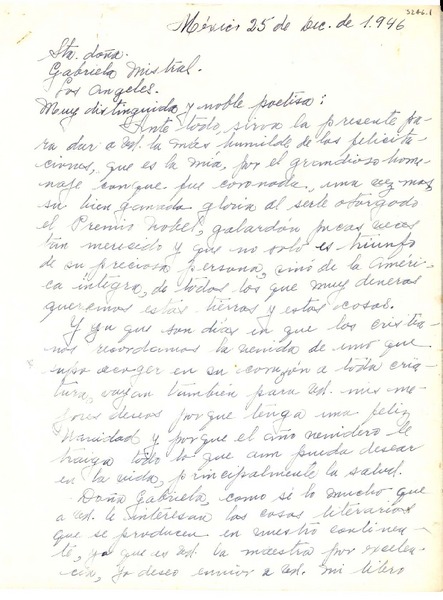 3266.1
México 25 de Dic. de 1.946
Sta. doña.
Gabriela Mistral.
Los Angeles.
Muy distinguida y noble poetisa:
Ante todo, sirva la presente pa
ra dar a Ud. la más humilde de las felicita
ciones, que es la mía, por el grandioso home
naje con que fue coronada, una vez mas,
su bien ganada gloria al serle otorgado
el Premio Nobel, galardón pocas veces
tan merecido y que no solo es triunfo
de su preciosa persona, sinó de la Améri
ca íntegra, de todos los que muy de veras
queremos estas tierras y estas cosas.
Y ya que son días en que los cristia
nos recordamos la venida de uno que
supo acoger en su corazón a toda cria
tura, vayan tambien para Ud. mis me
jores deseos porque tenga una feliz
Navidad y porque el año venidero le
traiga todo lo que aun pueda desear
en la vida, principalmente la salud.
Doña Gabriela, como sé lo mucho que
a Ud. le interesan las cosas literarias
que se producen en nuestro continen
te, ya que es Ud. la maestra por exelen
cia, yo deseo enviar a Ud. mi libro